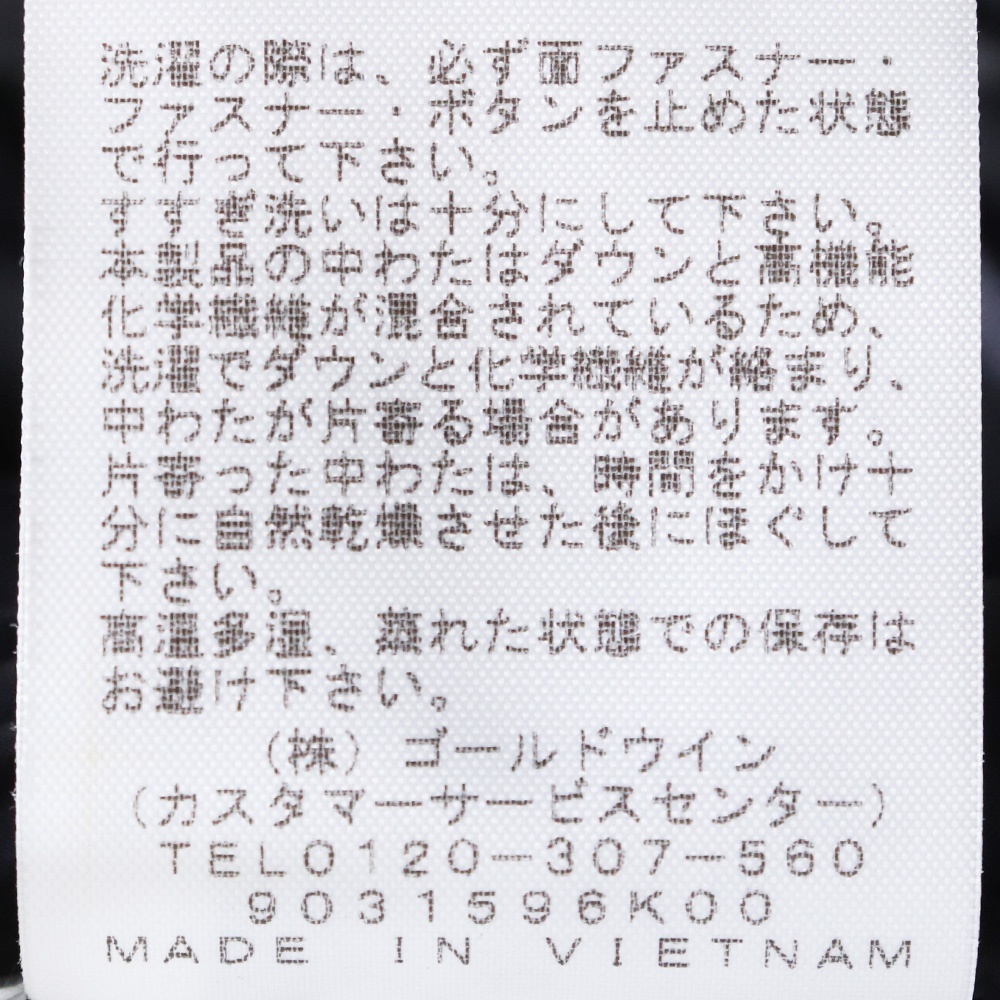 洗濯の際は、必ず面ファスナー・
ファスナー・ボタンを止めた状態
で行って下さい。
すすぎ洗いは十分にして下さい。
本製品の中わたはダウンと高機能
化学繊維が混合されているため、
洗濯でダウンと化学繊維が絡まり、
中わたが片寄る場合があります。
片寄った中わたは、時間をかけ十
分に自然乾燥させた後にほぐして
下さい。
高温多湿、蒸れた状態での保存は
お避け下さい。
(株) ゴールドウイン
(カスタマーサービスセンター)
TEL0120-307-560
9031596K00
MADE IN VIETNAM